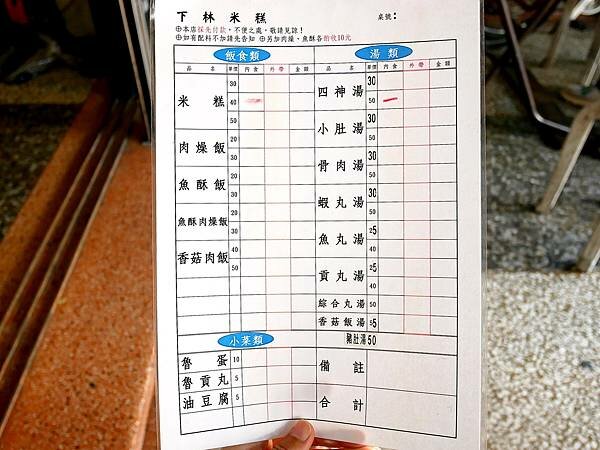 下林米糕 桌號：
⊕本店採先付款，不便之處，敬請見諒！
⊕如有配料不加請先告知 ⊕另加肉燥、魚酥各酌收10元
飯食類
品名 單價 內食 外帶 金額
米糕 30 40 50
肉燥飯 20 30
魚酥飯 20 30
魚酥肉燥飯 20 30
香菇肉飯 40 50
小菜類
魯蛋 10
魯貢丸 5
油豆腐 5
湯類
品名 單價 內食 外帶 金額
四神湯 30 50
小肚湯 30 50
骨肉湯 30 50
蝦丸湯 30 50
魚丸湯 25 40
貢丸湯 25 40
綜合丸湯 50
香菇飯湯 55
豬肚湯 50
備註
合計